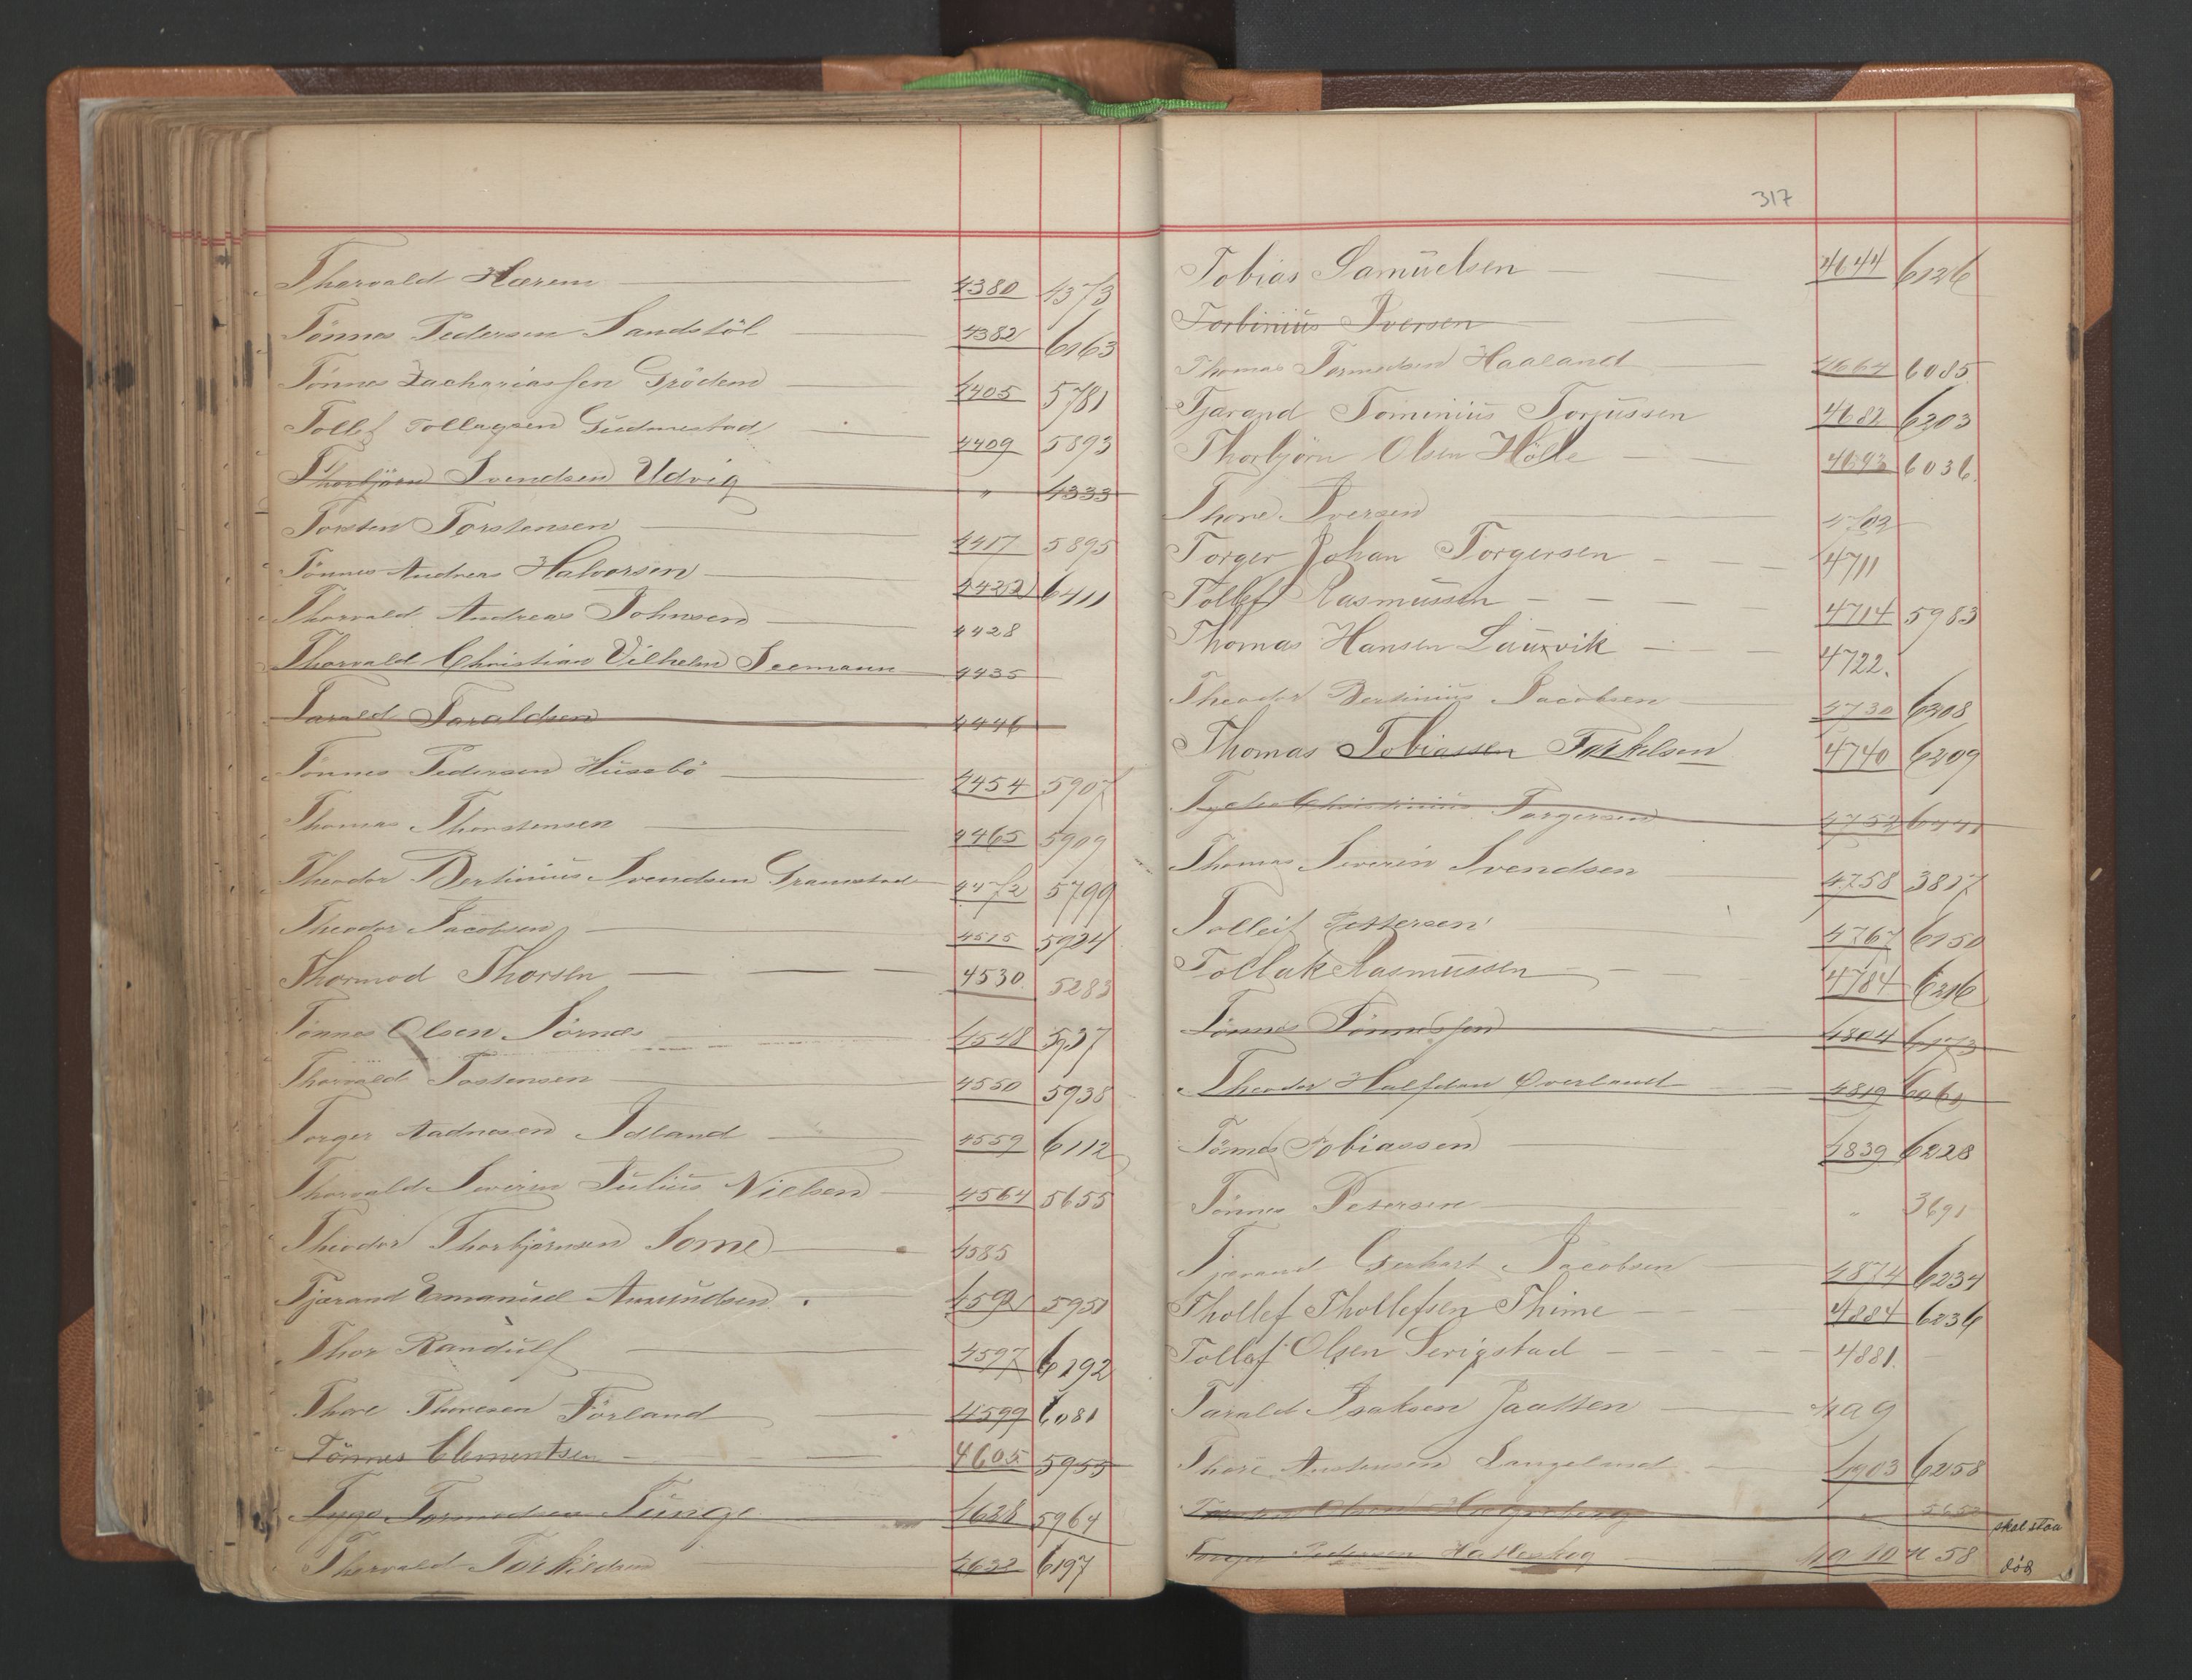 Thorvald Hærem 4380 4373
Tönnes Pedersen Sandstöl 4382 6163
Tönnes Zachariassen Grödem 4405 5781
Tollef Tollagsen Gudmestad 4409 5893
Thorbjörn Svendsen Udvig " 4333
Torsten Torstensen 4417 5895
Tönnes Andreas Halvorsen 4422 6411
Thorvald Andreas Johnsen 4428
Thorvald Christian Vilhelm Seemann 4435
Tarald Taraldsen 4446
Tönnes Pedersen Husebö 4454 5907
Thomas Thorstensen 4465 5909
Theodor Bertinius Svendsen Gramstad 4472 5799
Theodor Jacobsen 4515 5924
Thormod Thorsen 4530 5283
Tönnes Olsen Sörnes 4548 5937
Thorvald Tostensen 4550 5938
Torger Aadnesen Idland 4559 6112
Thorvald Severin Julius Nielsen 4564 5655
Theodor Thorbjörnsen Some 4585
Tjærand Emanuel Amundsen 4592 5951
Thor Randulf 4597 6192
Thore Thoresen Förland 4599 6081
Tönnes Clementsen 4605 5955
Tygo Tormodsen Tunge 4628 5964
Thorvald Torkildsen 4632 6197
317
Tobias Samuelsen 4644 6126
Torbinius Iversen
Thomas Tormodsen Haaland 4664 6085
Tjærand Tominius Torjussen 4682 6203
Thorbjørn Olsen Hölle 4693 6036.
Thore Iversen 4702
Torger Johan Torgersen 4711
Tollef Rasmussen 4714 5983
Thomas Hansen Laurvik 4722.
Theodor Bertinius Jacobsen 4730 6208
Thomas Tobiassen Torkelsen 4740 6209
Christinius Torgersen 4752 6441
Thomas Severin Svendsen 4758 3817
Tolleif Pettersen 4767 6150
Tollak Rasmussen 4784 6216
Tönnes Tönnessen 4804 6173
Theodor Halfdan Overland 4819 6061
Tönnes Tobiassen 4839 6228
Tönnes Petersen " 3691
Tjærand Gerhart Jacobsen 4874 6234
Thollef Thollefsen Thime 4884 6236
Tollef Olsen Serigstad 4881.
Tarald Isaksen Jaatten
Thore Austensen Langeland 4903 6258
Torsten Olsen " 5652
skal staa
Torger Pedersen Hatleskog 58